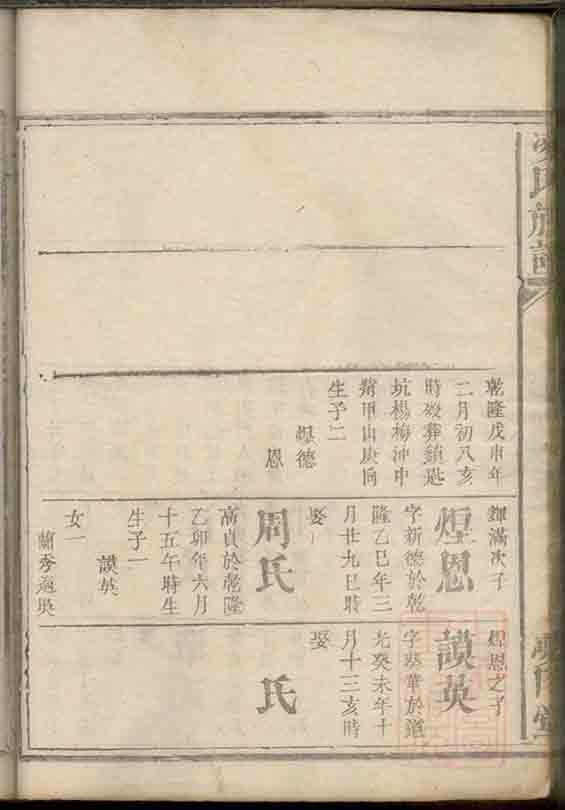 氏族譜
乾隆戊申年
二月初八亥
時歿葬鎖匙
坑楊梅冲中
嶺甲山庚向
生子二
煋德
恩
輝滿次子
煋恩
字新德於乾
隆乙巳年三
月廿九巳時
娶
周氏
高貞於乾隆
乙卯年六月
十五午時生
生子一
謨英
女一
蘭秀適英
煋恩之子
謨英
字華於道
光癸未年十
月十三亥時
娶
氏
堂